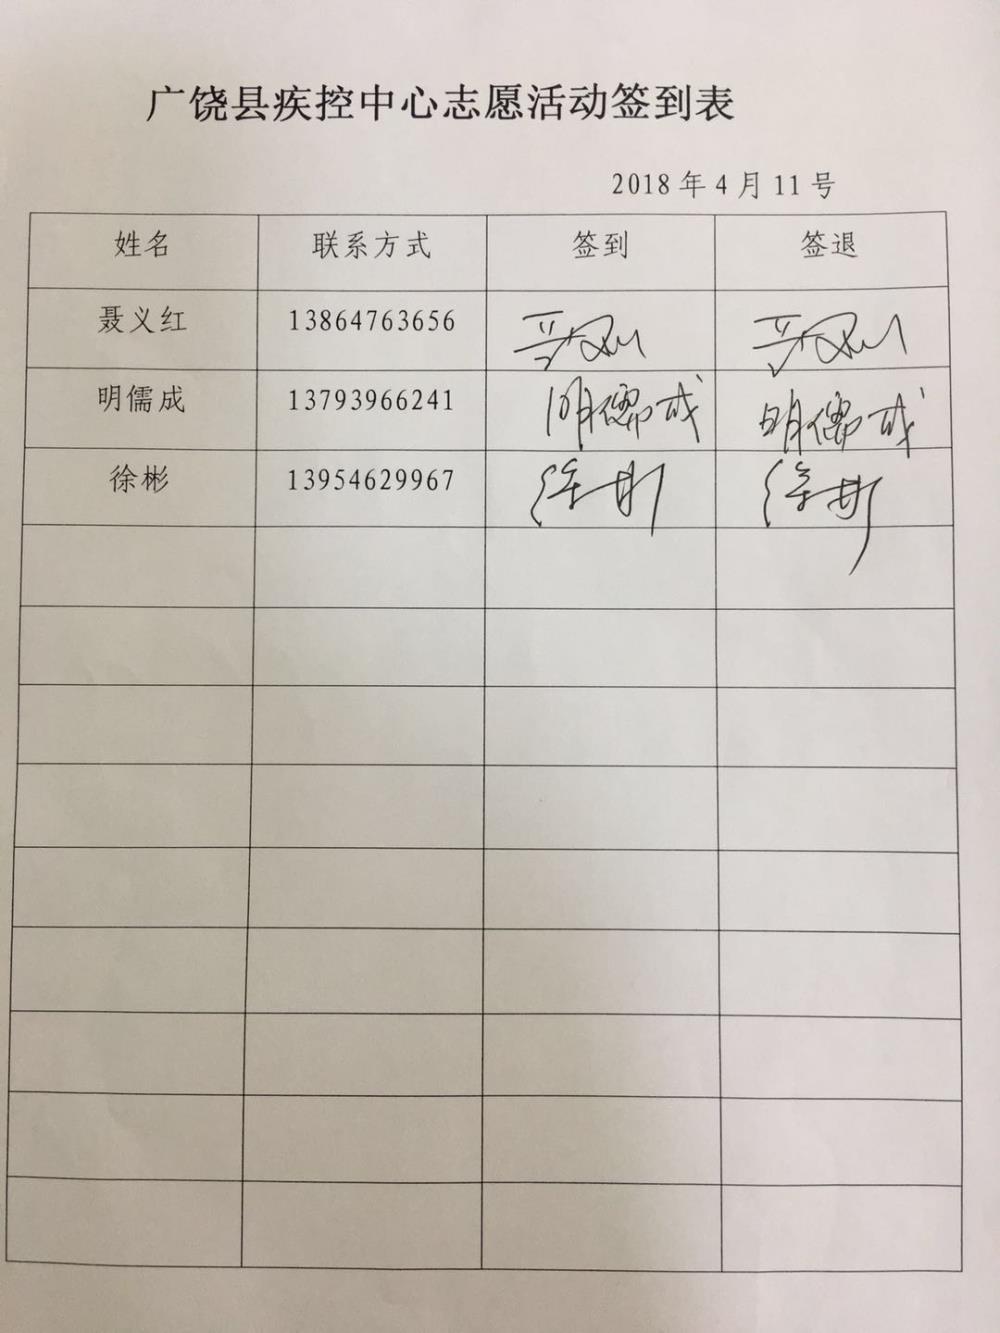 广饶县疾控中心志愿活动签到表
2018年4月11号
姓名 联系方式 签到 签退
聂义红 13864763656
明儒成 13793966241 明儒成 明儒成
徐彬 13954629967 徐彬 徐彬